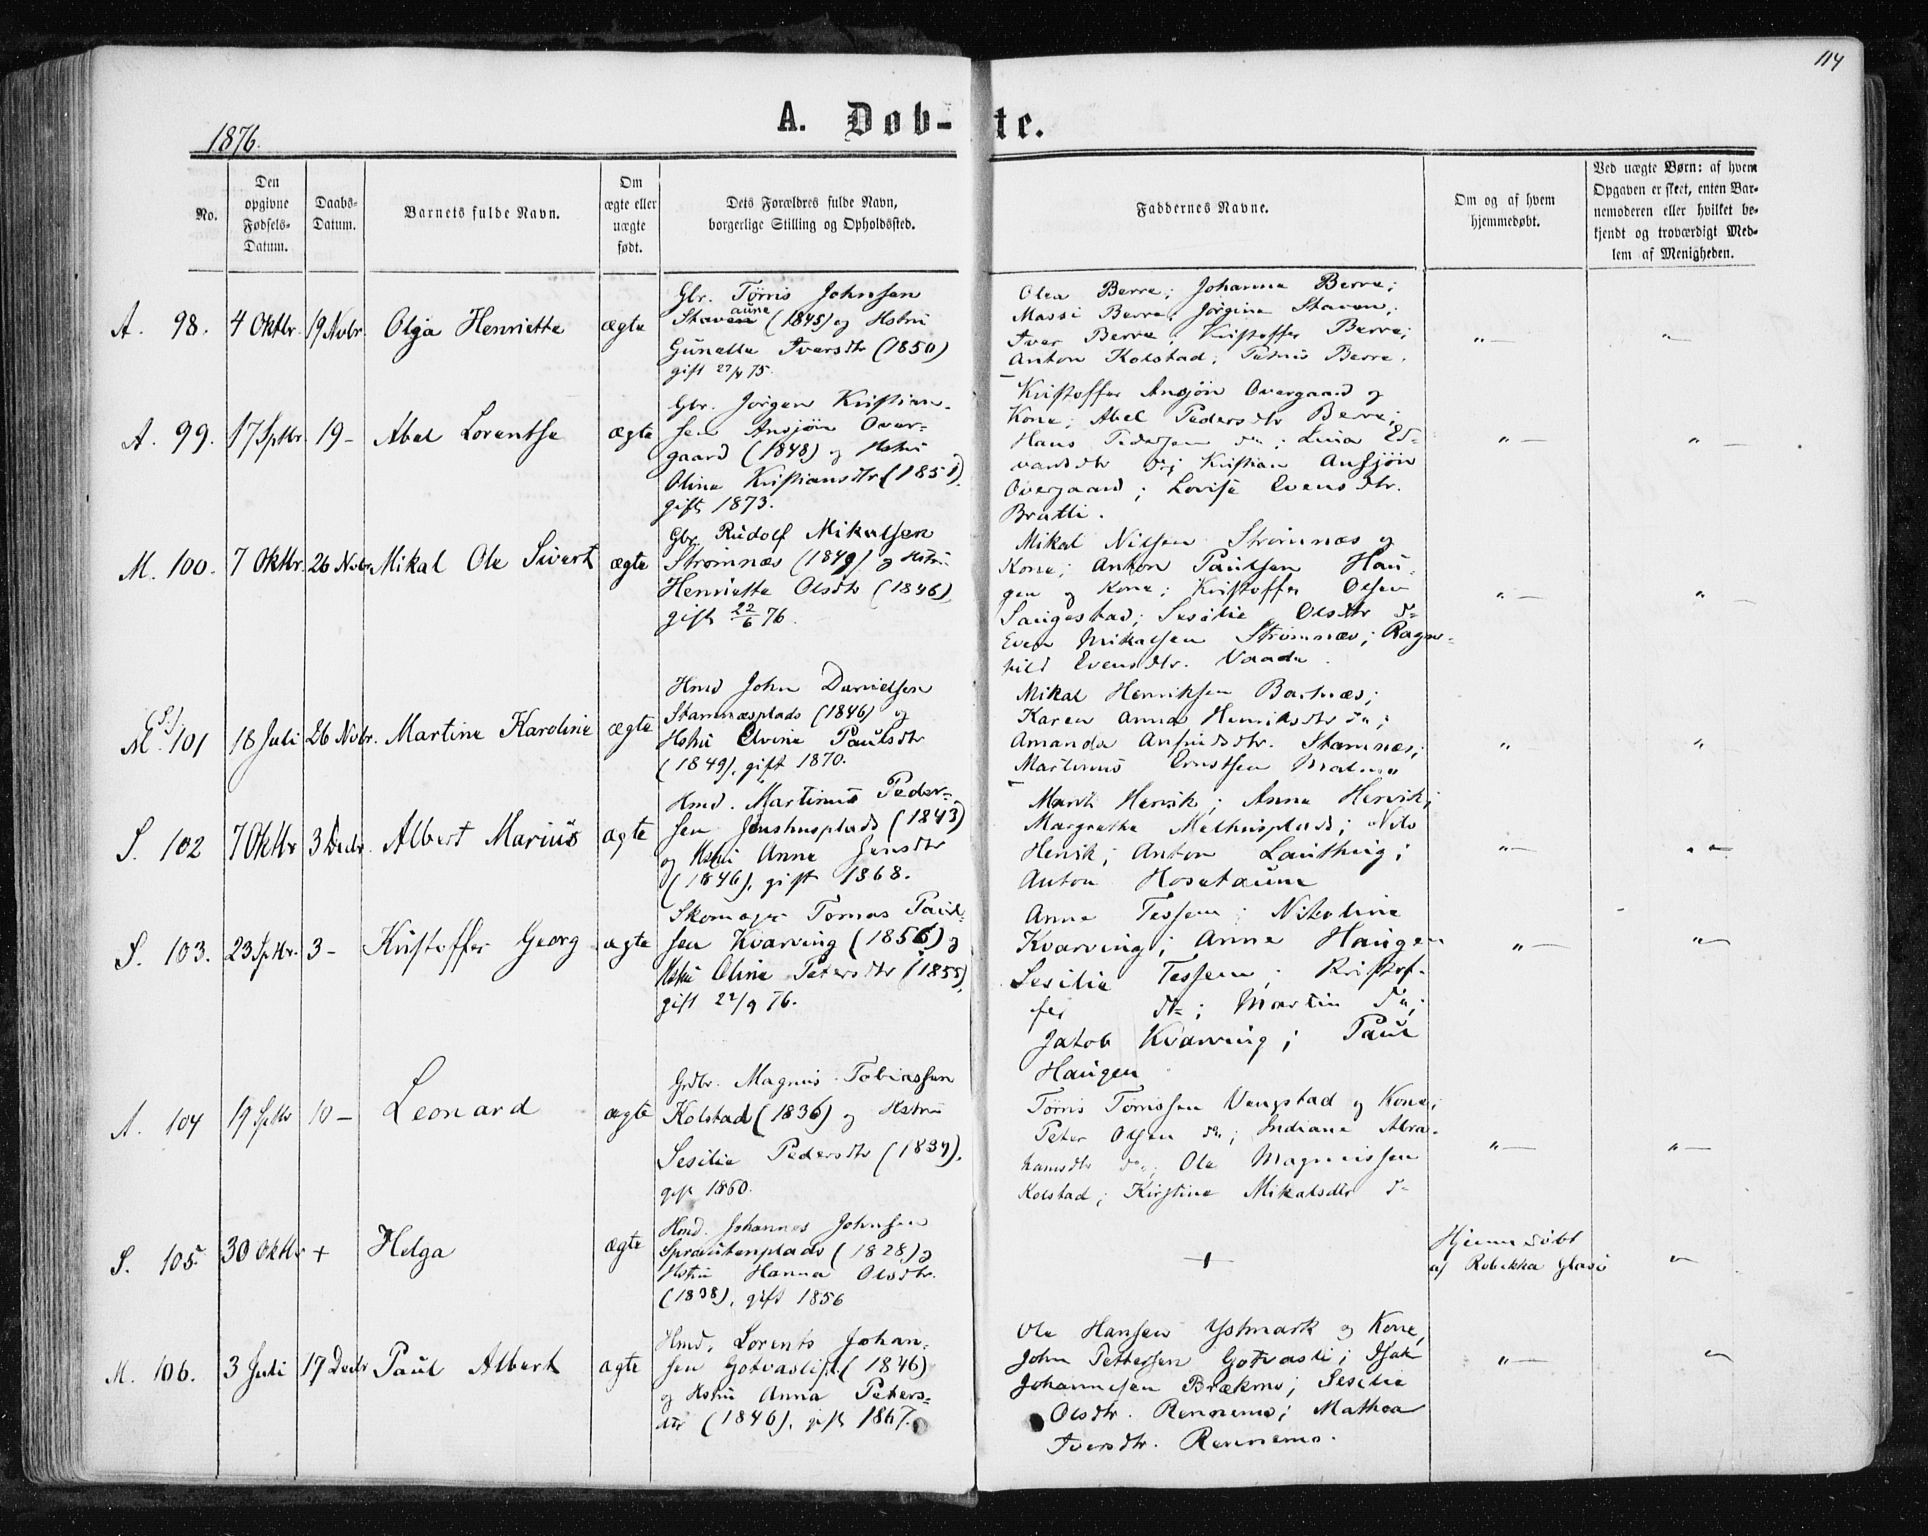 114
1876.
A. Døb-
te.
No.
Den
opgivne
Fødsels-
Datum.
Daabs-
Datum.
Barnets fulde Navn.
Om
ægte eller
uægte
født.
Dets Forældres fulde Navn,
borgerlige Stilling og Opholdssted.
Faddernes Navne.
Om og af hvem
hjemmedøbt.
Ved uægte Børn: af hvem
Opgaven er skeet, enten Bar-
nemoderen eller hvilket be-
kjendt og troværdigt Med-
lem af Menigheden.
A. 98. 4 Oktbr. 19 Novbr. Olga Henriette ægte
Gbr. Tørris Johnsen
Stavenaune (1845) og Hstru
Gunelle Iversdtr (1850)
gift 27/4 75.
Olea Berre; Johanna Berre;
Massi Berre; Jørgine Staven;
Iver Berre; Kristoffer Berre;
Anton Kolstad; Berre.
"— "—
A. 99. 17 Sptbr. 19 - Abel Lorentse ægte
Gbr. Jørgen Kristian-
sen Ansjøn Over-
gaard (1848) og Hstru
Oline Kristiansdtr (1851)
gift 1873.
Kristoffer Ansjøn Overgaard og
Kone; Abel Pedersdtr Berre;
Hans Pedersen do; Lina Ed-
vardsdtr do; Kristian Ansjøn
Overgaard; Lovise Evensdtr.
Bratli.
"— "—
M. 100. 7 Oktbr. 26 Novbr. Mikal Ole Sivert ægte
Gbr. Rudolf Mikalsen
Strømnæs (1849) og Hstru
Henriette Olsdtr (1846)
gift 22/6 76.
Mikal Nilsen Strømnæs og
Kone; Anton Paulsen Hau-
gen og Kone; Kristoffer Olsen
Saugestad; Sesilie Olsdtr do
Even Mikalsen Strømnæs; Ragn-
hild Evensdtr. Vaada.
"— "—
(S.)
M. 101 18 Juli 26 Novbr. Martine Karoline ægte
Hmd John Danielsen
Stamnæsplads (1846) og
Hstru Elvine Paulsdtr
(1849), gift 1870.
Mikal Henriksen Bartnæs;
Karen Anna Henriksdtr do;
Amanda Arnfinsdtr. Stamnæs;
Martinus Ernstsen Malmo
" "
S. 102 7 Oktbr 3 Decbr. Albert Marius ægte
Hmd. Martinus Peder-
sen Jenshusplads (1843)
og Hstru Anne Jensdtr
(1846), gift 1868.
Marit Henrik; Anna Henrik;
Margrethe Melhusplads; Nils
Henrik; Anton Lauthug;
Anton Hosetaune
"— "—
S. 103. 23 Sptbr. 3 - Kristoffer Georg ægte
Skomager Tomas Paul-
sen Kvarving (1856) og
Hstru Oline Petersdtr (1855),
gift 22/9 76.
Anne Tessem; Nikoline
Kvarving; Anne Haugen
Sesilie Tessem; Kristof-
fer do; Martin do;
Jakob Kvarving; Paul
Haugen
"— "—
A. 104 19 Sptbr 10 - Leonard ægte
Grdbr. Magnus Tobiassen
Kolstad (1836) og Hstru
Sesilie Pedersdtr (1834),
gift 1860.
Tørris Tørrissen Vengstad og Kone;
Peter Olsen do; Indiane Abra-
hamsdtr do; Ole Magnussen
Kolstad; Kirstine Mikalsdtr do
"— "—
S. 105. 30 Oktbr + Helga ægte
Hmd. Johannes Johnsen
Sprautenplads (1828) og
Hstru Hanna Olsdtr.
(1838), gift 1856
+
Hjemmedøbt
af Rebekka Glasø
"
M. 106. 3 Juli 17 Decbr Paul Albert ægte
Hmd. Lorents Johan-
sen Gotvasli (1846)
og Hstru Anna Peters-
dtr (1846), gift 1867.
Ole Hansen Ystmark og Kone,
John Pettersen Gotvasli; Isak
Johannesen Brækmo; Sesilie
Olsdtr. Rennemo; Mathea
Iversdtr. Rennemo.
"— "